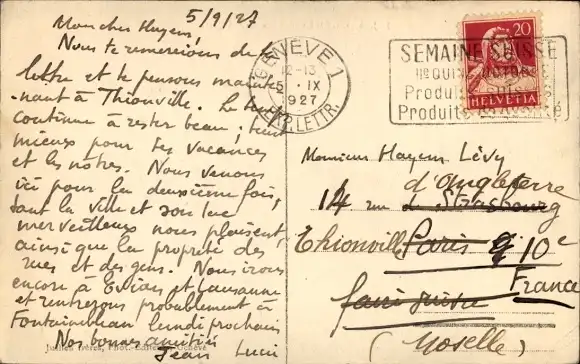 5/9/27
Mon cher Hayem,
Nous te remercions de ta
lettre et te pensons mainte-
nant à Thionville. Le temps
continue à rester beau ; tant
mieux pour tes vacances
et les nôtres. Nous venons
ici pour la deuxième fois,
tant la ville et son lac
merveilleux nous plaisent,
ainsi que la propreté des
rues et des gens. Nous irons
encore à Evian et Lausanne
et rentrerons probablement à
Fontainebleau lundi prochain
Nos bonnes amitiés
Jean Lucie
Jullien frères, Phot.-Editeurs, Genève
GENÈVE 1
12-13
5. IX
1927
EXP. LETTR.
SEMAINE SUISSE
Produits
Produits
20
HELVETIA
Monsieur Hayem Lévy
d'Angleterre
14 rue de Strasbourg
Thionville Paris 10e
France
faire suivre
(Moselle)